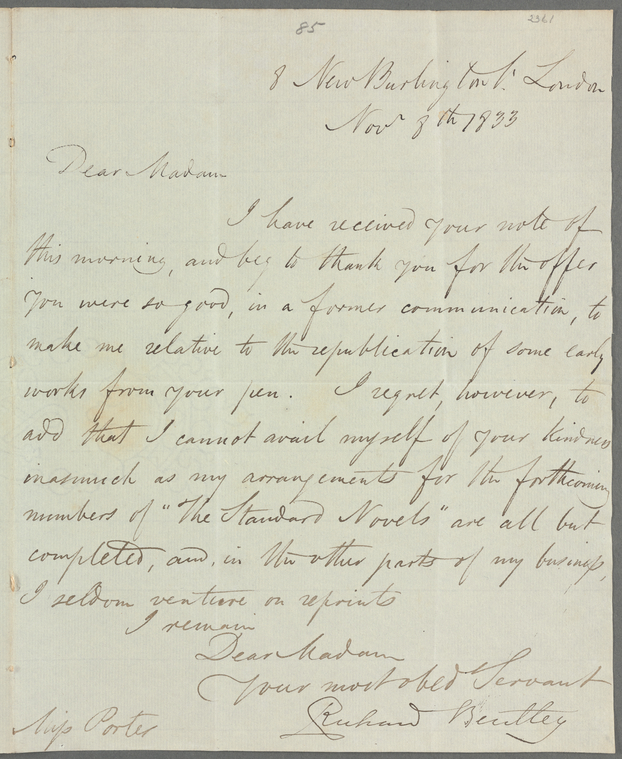 85
2321
8 New Burlington St. London
Novr 8th 1833
Dear Madam
I have received your note of
this morning, and beg to thank you for the offer
you were so good, in a former communication, to
make me relative to the republication of some early
works from your pen. I regret, however, to
add that I cannot avail myself of your kindness
inasmuch as my arrangements for the forthcoming
numbers of "The Standard Novels" are all but
completed, and, in the other parts of my business,
I seldom venture on reprints
I remain
Dear Madam
Your most obed Servant
Richard Bentley
Miss Porter